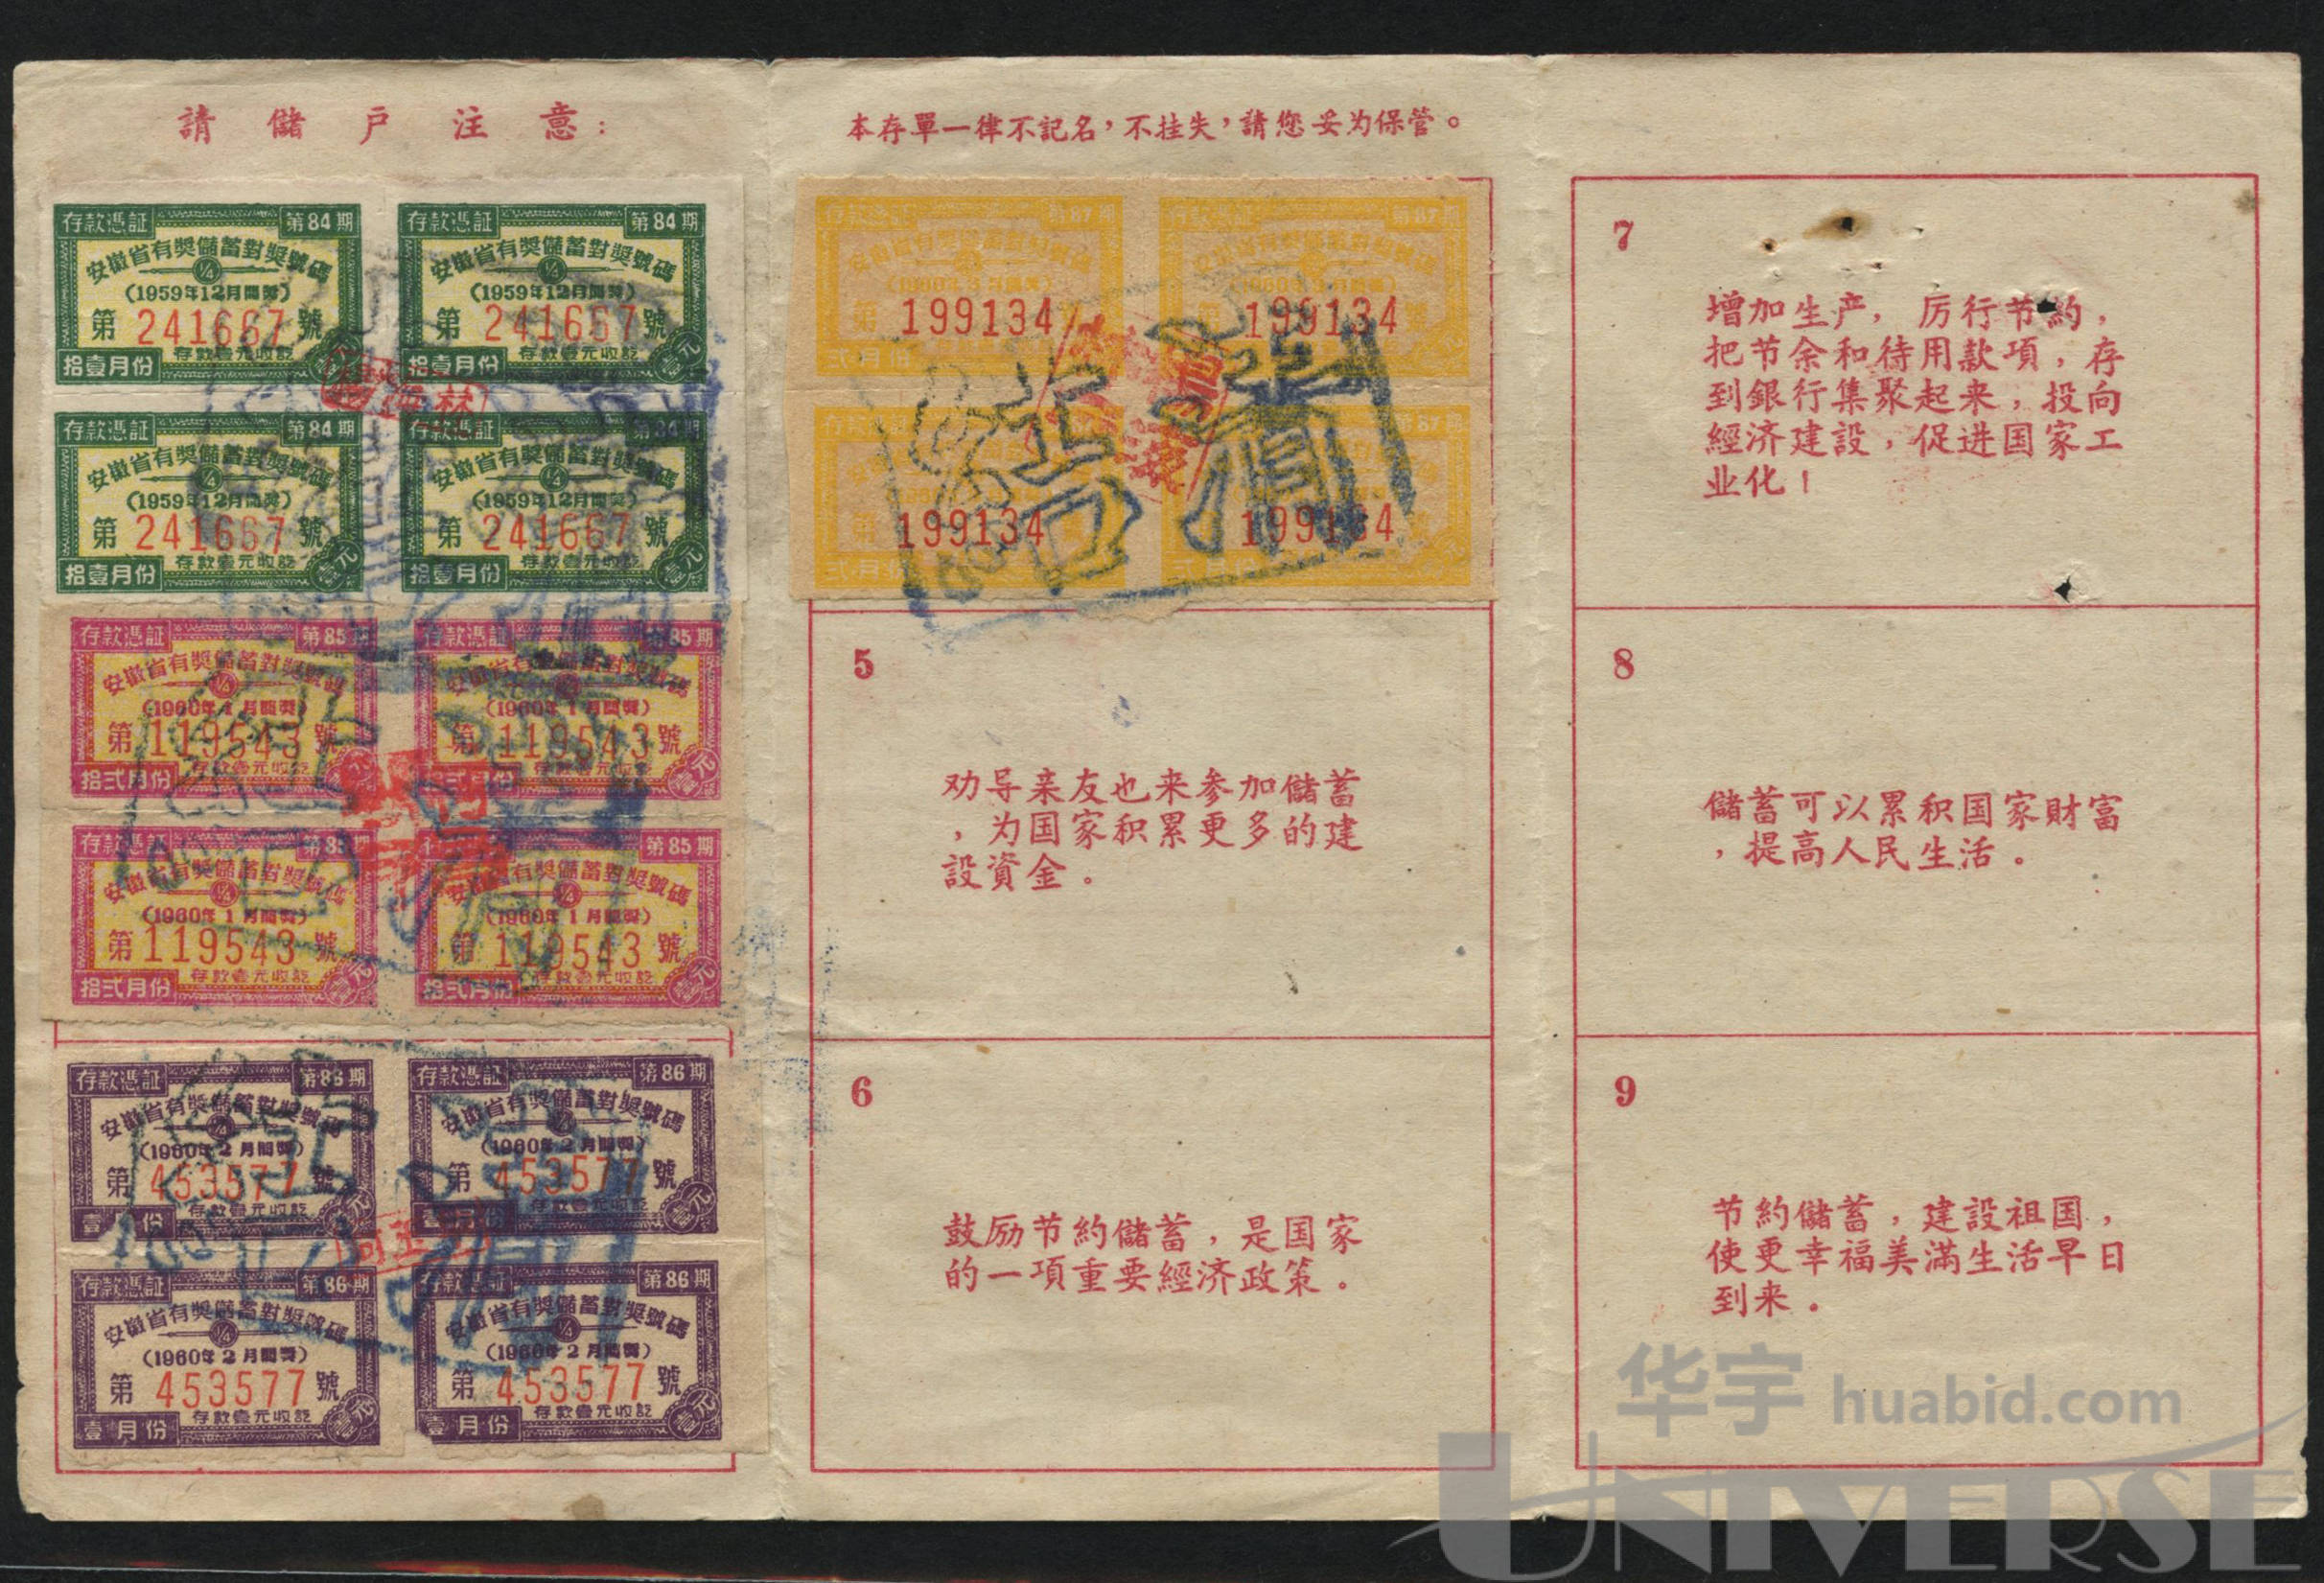 請儲戶注意：
存款憑証 第84期
安徽省有獎儲蓄對獎號碼
1/4
(1959年12月開獎)
第 241667 號
存款壹元收訖
拾壹月份 壹元
存款憑証 第84期
安徽省有獎儲蓄對獎號碼
1/4
(1959年12月開獎)
第 241667 號
存款壹元收訖
拾壹月份 壹元
存款憑証 第84期
安徽省有獎儲蓄對獎號碼
1/4
(1959年12月開獎)
第 241667 號
存款壹元收訖
拾壹月份 壹元
存款憑証 第84期
安徽省有獎儲蓄對獎號碼
1/4
(1959年12月開獎)
第 241667 號
存款壹元收訖
拾壹月份 壹元
存款憑証 第85期
安徽省有獎儲蓄對獎號碼
1/4
(1960年1月開獎)
第 119543 號
存款壹元收訖
拾弍月份
存款憑証 第85期
安徽省有獎儲蓄對獎號碼
(1960年1月開獎)
第 119543 號
存款壹元收訖
拾弍月份 壹元
存款憑証 第85期
安徽省有獎儲蓄對獎號碼
1/4
(1960年1月開獎)
第 119543 號
存款壹元收訖
拾弍月份 壹元
存款憑証 第85期
安徽省有獎儲蓄對獎號碼
1/4
(1960年1月開獎)
第 119543 號
存款壹元收訖
拾弍月份 壹元
存款憑証 第86期
安徽省有獎儲蓄對獎號碼
(1960年2月開獎)
第 453577 號
存款壹元收訖
壹月份 壹元
存款憑証 第86期
安徽省有獎儲蓄對獎號碼
(1960年2月開獎)
第 453577 號
存款壹元收訖
壹月份 壹元
存款憑証 第86期
安徽省有獎儲蓄對獎號碼
1/4
(1960年2月開獎)
第 453577 號
存款壹元收訖
壹月份 壹元
存款憑証 第86期
安徽省有獎儲蓄對獎號碼
1/4
(1960年2月開獎)
第 453577 號
存款壹元收訖
壹月份 壹元
本存單一律不記名，不挂失，請您妥为保管。
存款憑証 第87期
安徽省有獎儲蓄對獎號碼
第 199134
弍月份
存款憑証 第87期
安徽省有獎儲蓄對獎號碼
第 199134 號
弍月份
199134
弍月份
第87期
199134
弍月份
結清
5
劝导亲友也来参加儲蓄
，为国家积累更多的建
設資金。
6
鼓励节約儲蓄，是国家
的一項重要經济政策。
7
增加生产，厉行节約，
把节余和待用款項，存
到銀行集聚起来，投向
經济建設，促进国家工
业化！
8
儲蓄可以累积国家財富
，提高人民生活。
9
节約儲蓄，建設祖国，
使更幸福美滿生活早日
到来。
华宇 huabid.com
UNIVERSE